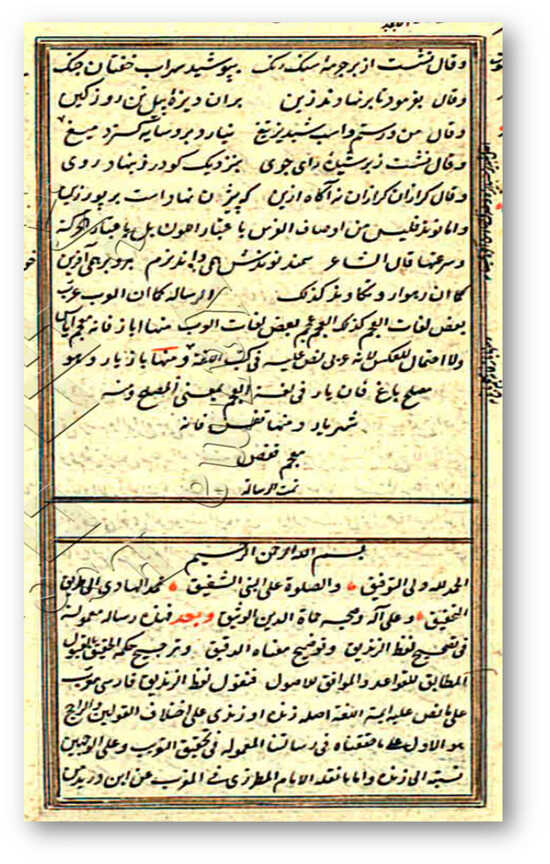 وقال نشست از بر جرمهٔ سنک رنک بپوشید سهراب خفتان جنک
وقال بفرمود تا برنهادند زین بران ویژهٔ پیل تن روز کین
وقال من ورستم واسب شبدیز وتیغ نیارد برو سایه کسترد میغ
وقال نشست از بر شیدهٔ رای جوی بنزدیک کودرز بنهاد روی
وقال کرازان کرازان نه آکاه ازین که بیژن نهاد است بر بور زین
واما نوند فلیس من اوصاف الفرس باعتبار لونه بل باعتبار الحرکة
وسرعتها قال الشاعر سمند نوندش همی راند نرم برو برهمی آفرین
کما ان رهوار وتکاور کذلک الرساله کما ان العرب عرب
بعض لغات العجم کذلک العجم عجم بعض لغات العرب منها اباز فانه معجم ایاس
ولا احتمال للعکس لانه عربی نص علیه فی کتب اللغة ومنها بازیار وهو
مصلح باغ فان یار فی لغة العجم بمعنی المصلح ومنه
شهریار ومنها تفس فانه
معجم قفص
تمت الرساله
بسم الله الرحمن الرحیم
الحمد لله ولی التوفیق والصلوة علی النبی الشفیق محمد الهادی الی طریق
التحقیق وعلی آله وصحبه حماة الدین الوثیق وبعد فهذه رسالة معمولة
فی تصحیح لفظ الزندیق وتوضیح معناه الدقیق وترجیح حکمه الحقیق بالقبول
المطابق للقواعد والموافق للاصول فنقول لفظ الزندیق فارسی معرب
علی ما نص علیه ایمة اللغة اصله زنده او زندی علی اختلاف القولین والراجح
هو الاول علی ما حققناه فی رسالتنا المعموله فی تحقیق التعریب وعلی الوجهین
نسبته الی زند واما ما نقله الامام المطرزی فی المغرب عن ابن درید من